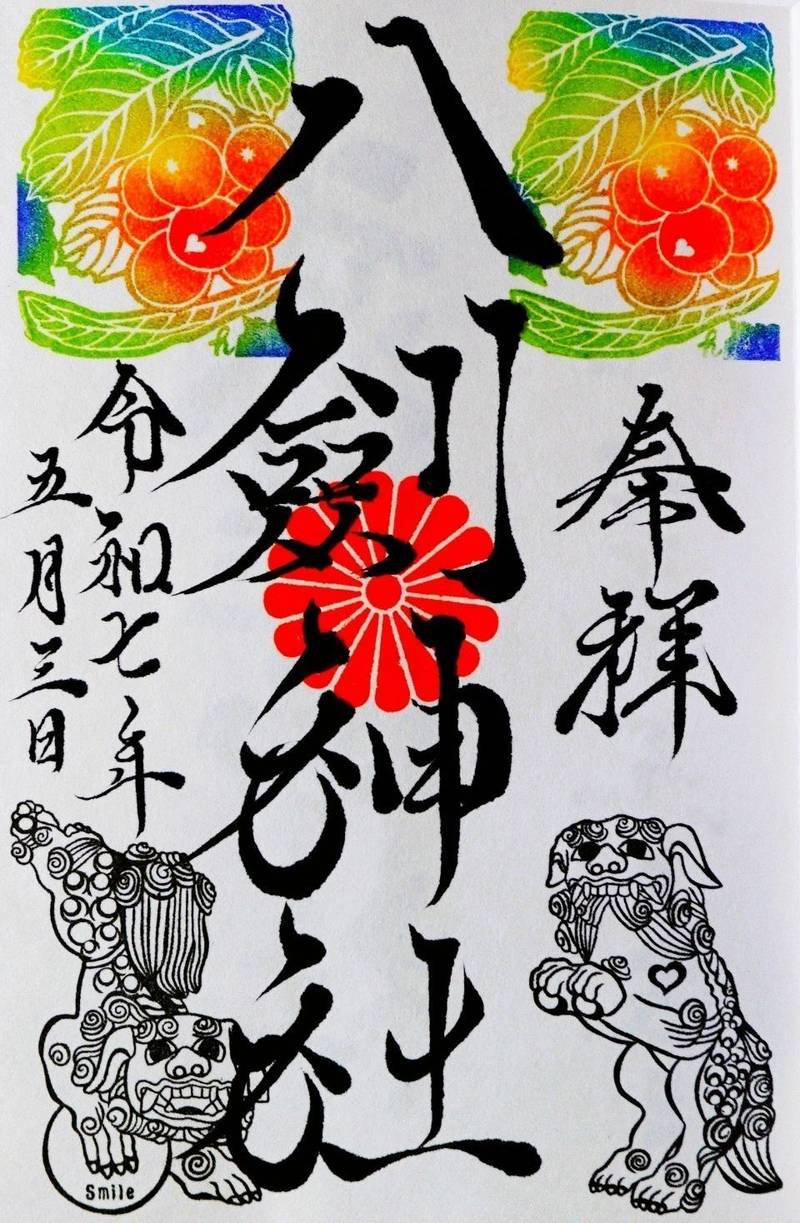 奉拝
八剱神社
令和七年
五月三日
Smile